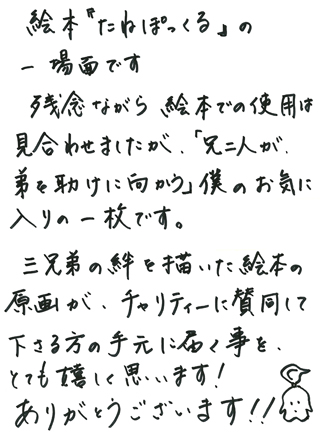 絵本『たねぽっくる』の
一場面です
残念ながら 絵本での使用は
見合わせましたが、「兄二人が、
弟を助けに向かう」僕のお気に
入りの一枚です。
三兄弟の絆を描いた絵本の
原画が、チャリティーに賛同して
下さる方の手元に届く事を、
とても嬉しく思います!
ありがとうございます!!